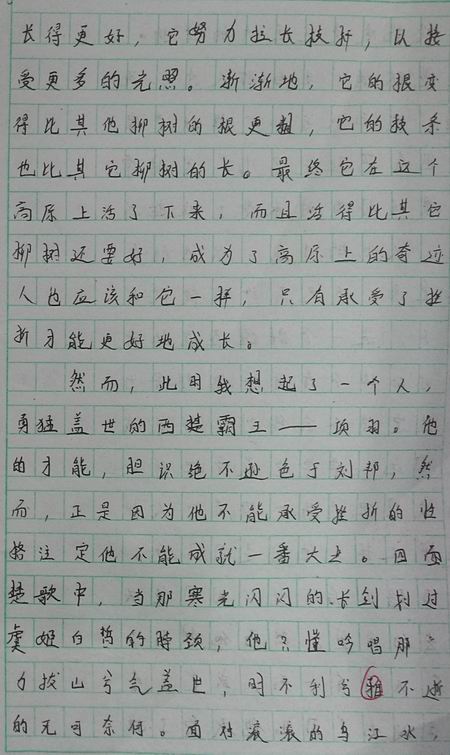 长得更好，它努力拉长枝折，以接
受更多的光照。渐渐地，它的根变
得比其他柳树的根更粗，它的枝条
也比其它柳树的长。最终它在这个
高原上活了下来，而且活得比其它
柳树还要好，成为了高原上的奇迹
人也应该和它一样，只有承受了挫
折才能更好地成长。
然而，此时我想起了一个人，
勇猛盖世的西楚霸王——项羽。他
的才能，胆识绝不逊色于刘邦，然
而，正是因为他不能承受挫折的性
格注定他不能成就一番大业。四面
楚歌中，当那寒光闪闪的长剑划过
虞姬白皙的脖颈，他只懂吟唱那"
力拔山兮气盖世，时不利兮骓不逝
的无可奈何。面对滚滚的乌江水，